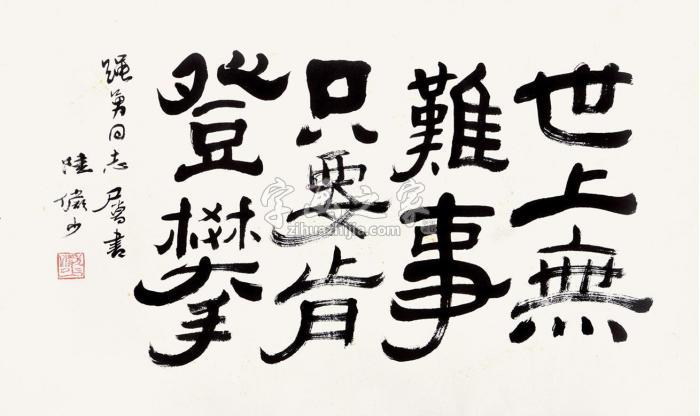 世上無
難事
只要肯
登攀
勇同志屬書
陸儼少
字画之家
zihuazhijia.com